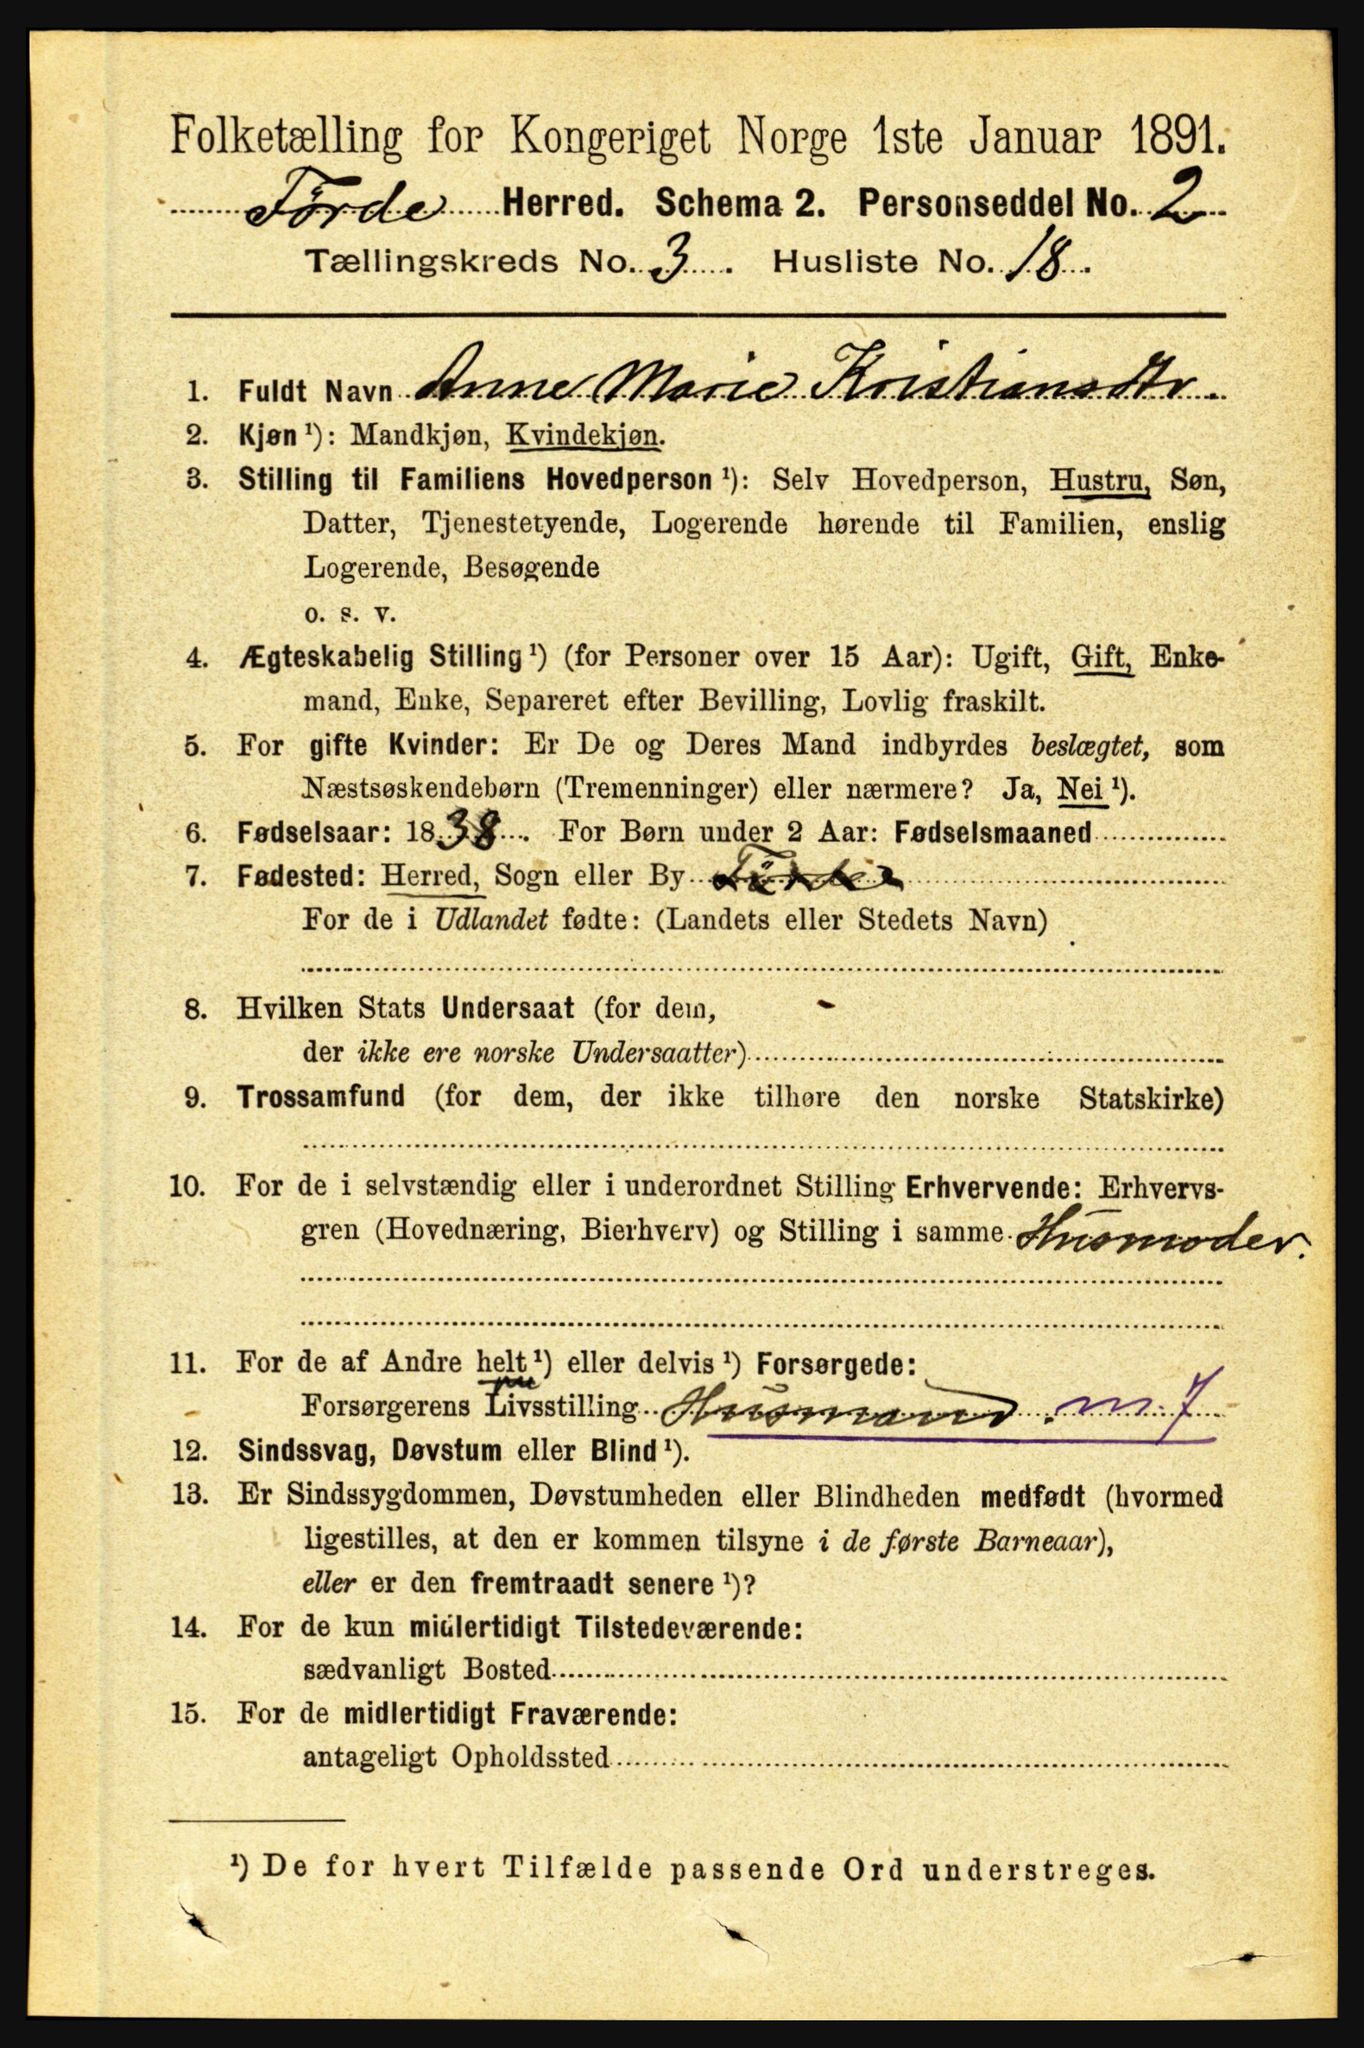 Folketælling for Kongeriget Norge 1ste Januar 1891.
Förde Herred. Schema 2. Personseddel No. 2
Tællingskreds No. 3. Husliste No. 18.
1. Fuldt Navn Anne Marie Kristiansdtr.
2. Kjøn ¹): Mandkjøn, Kvindekjøn.
3. Stilling til Familiens Hovedperson ¹): Selv Hovedperson, Hustru, Søn,
Datter, Tjenestetyende, Logerende hørende til Familien, enslig
Logerende, Besøgende
o. s. v.
4. Ægteskabelig Stilling ¹) (for Personer over 15 Aar): Ugift, Gift, Enke-
mand, Enke, Separeret efter Bevilling, Lovlig fraskilt.
5. For gifte Kvinder: Er De og Deres Mand indbyrdes beslægtet, som
Næstsøskendebørn (Tremenninger) eller nærmere? Ja, Nei ¹).
6. Fødselsaar: 1838. For Børn under 2 Aar: Fødselsmaaned
7. Fødested: Herred, Sogn eller By Förde
For de i Udlandet fødte: (Landets eller Stedets Navn)
8. Hvilken Stats Undersaat (for dem,
der ikke ere norske Undersaatter)
9. Trossamfund (for dem, der ikke tilhøre den norske Statskirke)
10. For de i selvstændig eller i underordnet Stilling Erhvervende: Erhvervs-
gren (Hovednæring, Bierhverv) og Stilling i samme Husmoder.
11. For de af Andre helt ¹) eller delvis ¹) Forsørgede:
Forsørgerens Livsstilling Husmand. m. 7
12. Sindssvag, Døvstum eller Blind ¹).
13. Er Sindssygdommen, Døvstumheden eller Blindheden medfødt (hvormed
ligestilles, at den er kommen tilsyne i de første Barneaar),
eller er den fremtraadt senere ¹)?
14. For de kun midlertidigt Tilstedeværende:
sædvanligt Bosted
15. For de midlertidigt Fraværende:
antageligt Opholdssted
¹) De for hvert Tilfælde passende Ord understreges.